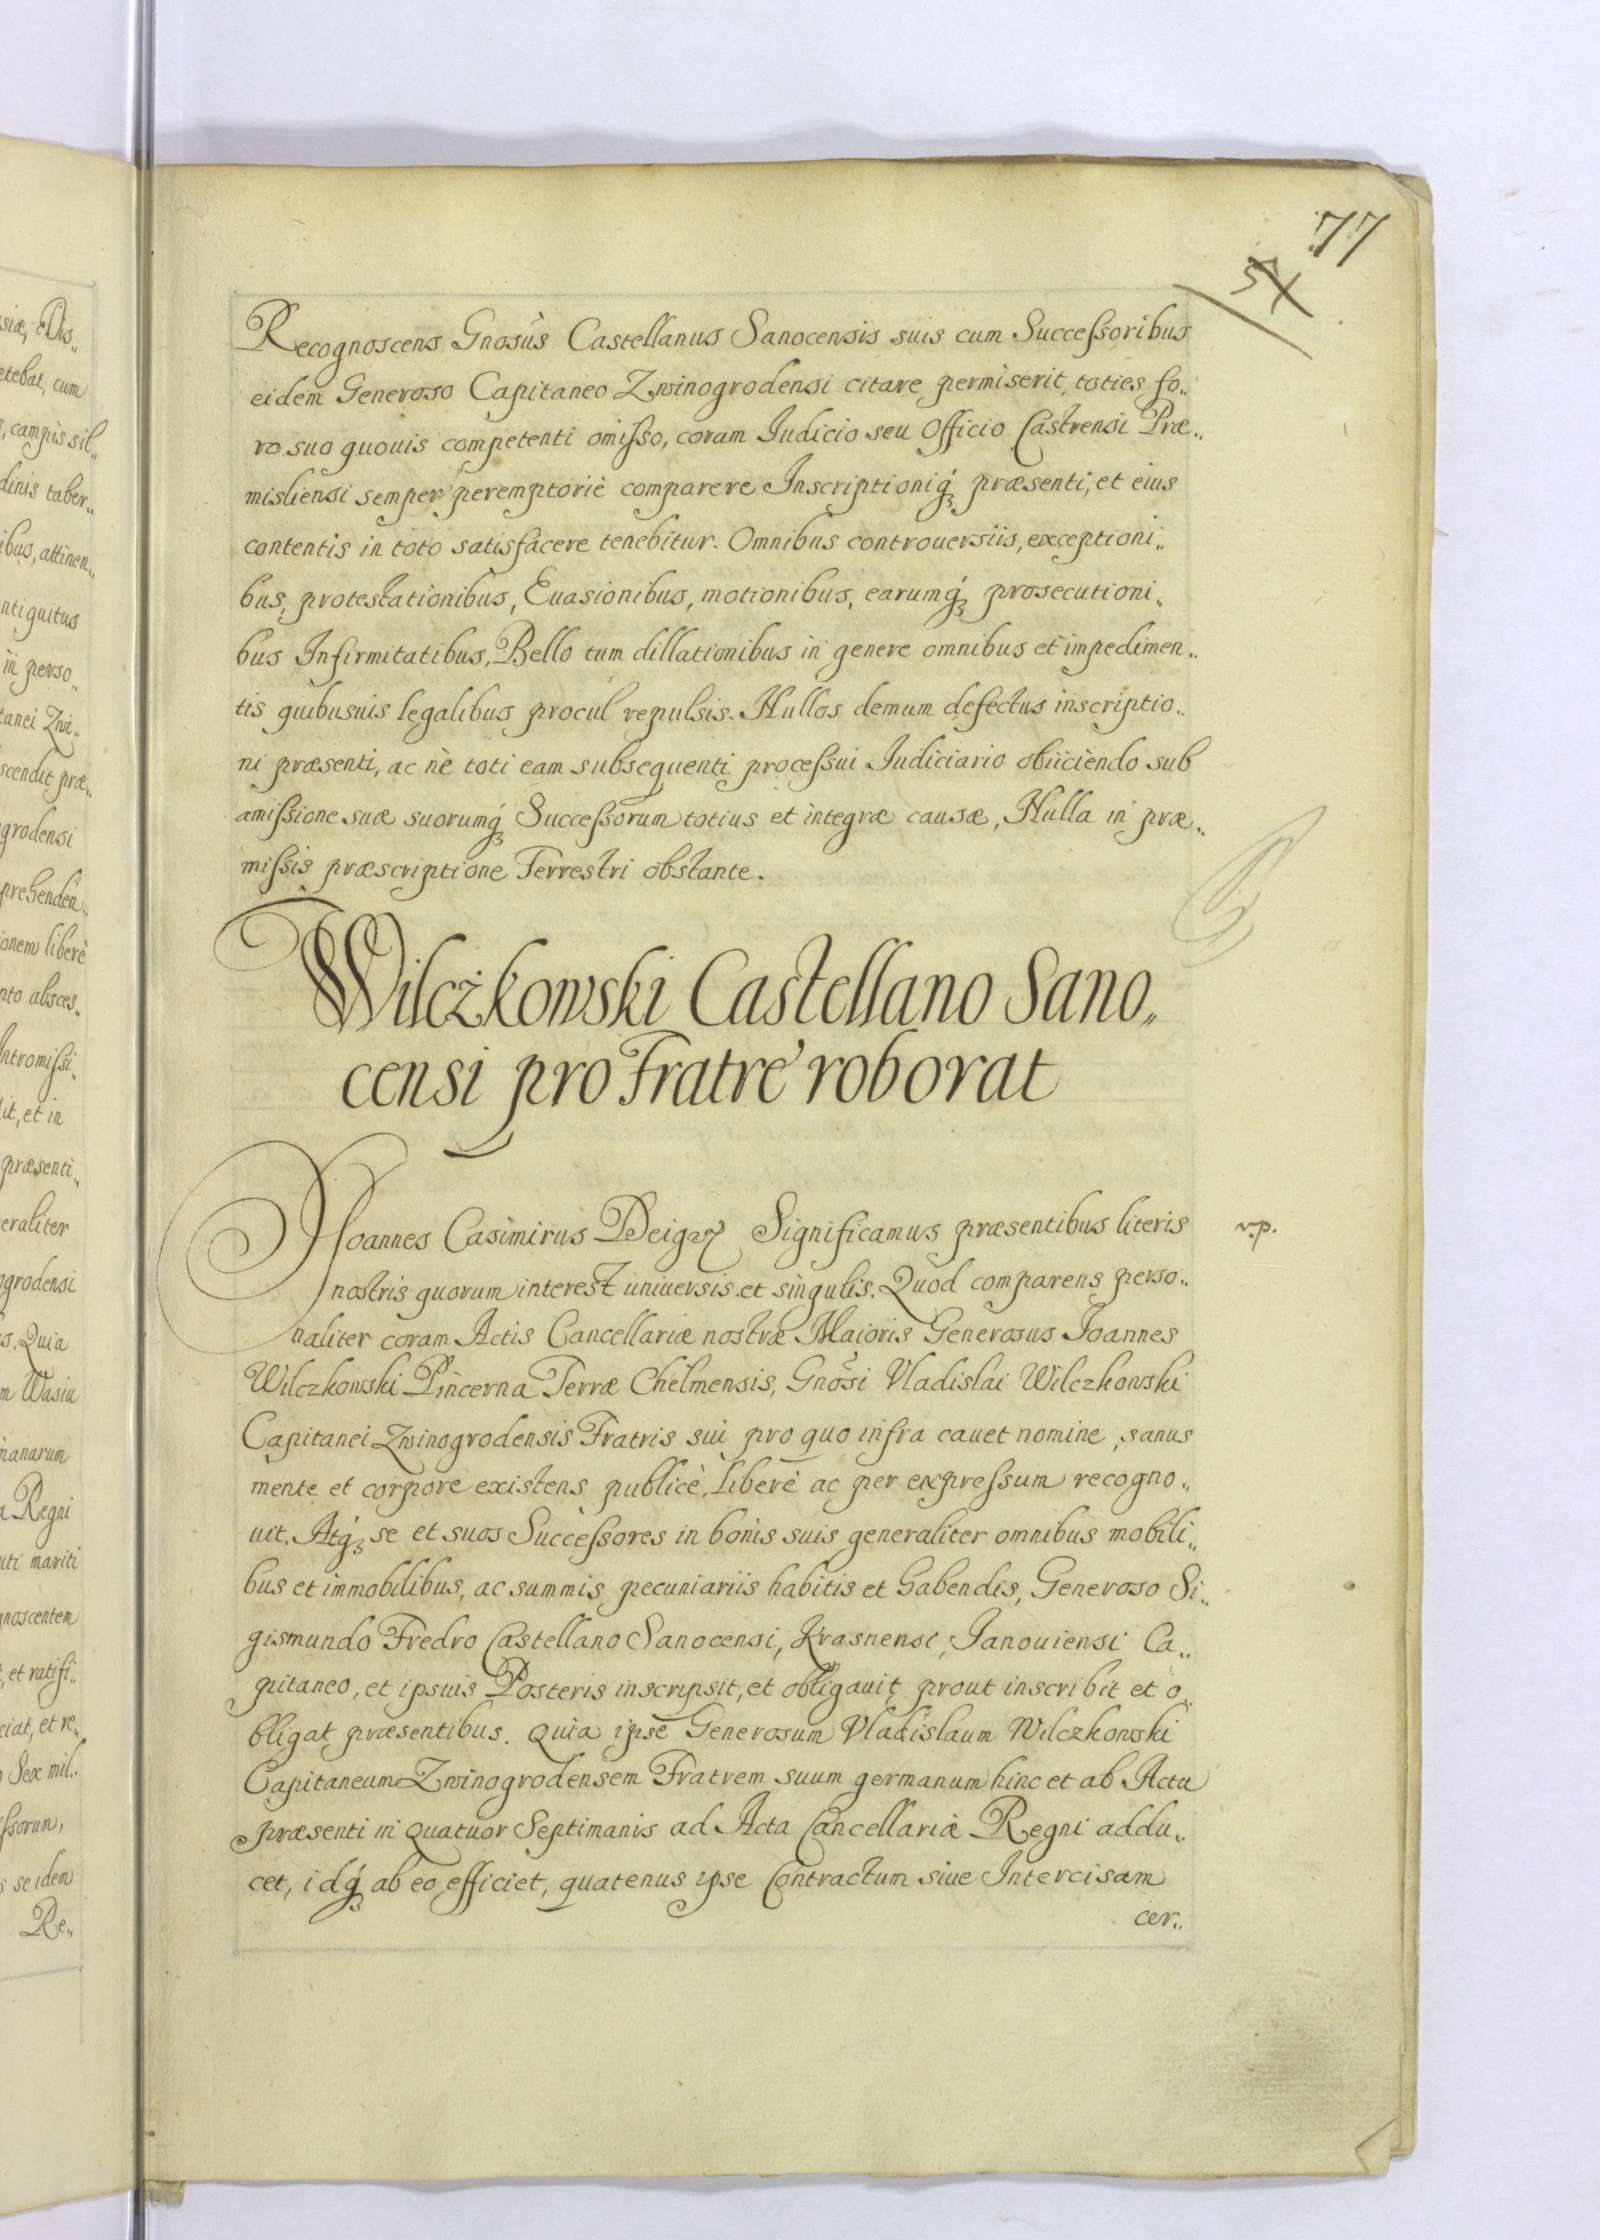 77
Recognoscens Gnosùs Castellanus Sanocensis suis cum Successoribus
eidem Generoso Capitaneo Zwinogrodensi citare permiserit, toties fo„
ro suo quouis competenti omisso, coram Iudicio seu Officio Castrensi Præ„
misliensi semper peremptoriè comparere Inscriptioniq́ præsenti, et eius
contentis in toto satisfacere tenebitur. Omnibus controuersiis, exceptioni„
bus, protestationibus, Euasionibus, motionibus, earumq́ prosecutioni„
bus Infirmitatibus, Bello tum dillationibus in genere omnibus et impedimen„
tis quibusuis legalibus procul repulsis. Nullos demum defectus inscriptio„
ni præsenti, ac nè toti eam subsequenti processui Iudiciario obiiciendo sub
amissione suæ suorumq́ Successorum totius et integræ causæ, Nulla in præ„
missis præscriptione Terrestri obstante.
Wilczkowski Castellano Sano„
censi pro Fratre roborat
Ioannes Casimirus Deigrã Significamus præsentibus literis
v.p.
nostris quorum interest uniuersis et singulis. Quod comparens perso„
naliter coram Actis Cancellariæ nostræ Maioris Generosus Ioannes
Wilczkowski Pincerna Terræ Chelmensis, Gnosi Vladislai Wilczkowski
Capitanei Zwinogrodensis Fratris sui pro quo infra cauet nomine, sanus
mente et corpore existens publicè, liberè ac per expressum recogno„
uit. Atq́ se et suos Successores in bonis suis generaliter omnibus mobili„
bus et immobilibus, ac summis pecuniariis habitis et habendis, Generoso Si„
gismundo Fredro Castellano Sanocensi, Krasnensi, Ianouiensi Ca„
pitaneo, et ipsius Posteris inscripsit, et obligauit prout inscribit et o„
bligat præsentibus. Quia ipse Generosum Vladislaum Wilczkowski
Capitaneum Zwinogrodensem Fratrem suum germanum hinc et ab Actu
præsenti in quatuor Septimanis ad Acta Cancellariæ Regni addu„
cet, idq́ ab eo efficiet, quatenus ipse Contractum siue Intercisam
cer„